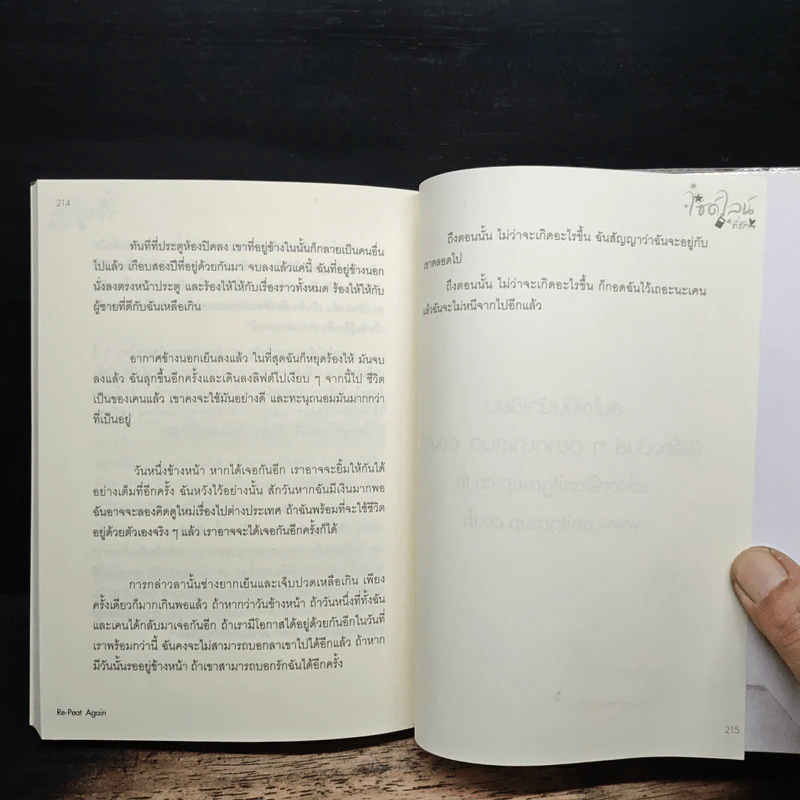 214
ทันทีที่ประตูห้องปิดลง เขาที่อยู่ข้างในนั้นก็กลายเป็นคนอื่น
ไปแล้ว เกือบสองปีที่อยู่ด้วยกันมา จบลงแล้วแค่นี้ ฉันที่อยู่ข้างนอก
นั่งลงตรงหน้าประตู และร้องไห้ให้กับเรื่องราวทั้งหมด ร้องไห้ให้กับ
ผู้ชายที่ดีกับฉันเหลือเกิน
อากาศข้างนอกเย็นลงแล้ว ในที่สุดฉันก็หยุดร้องไห้ มันจบ
ลงแล้ว ฉันลุกขึ้นอีกครั้งและเดินลงลิฟต์ไปเงียบ ๆ จากนี้ไป ชีวิต
เป็นของเคนแล้ว เขาคงจะใช้มันอย่างดี และทะนุถนอมมันมากกว่า
ที่เป็นอยู่
วันหนึ่งข้างหน้า หากได้เจอกันอีก เราอาจจะยิ้มให้กันได้
อย่างเต็มที่อีกครั้ง ฉันหวังไว้อย่างนั้น สักวันหากฉันมีเงินมากพอ
ฉันอาจจะลองคิดดูใหม่เรื่องไปต่างประเทศ ถ้าฉันพร้อมที่จะใช้ชีวิต
อยู่ด้วยตัวเองจริง ๆ แล้ว เราอาจจะได้เจอกันอีกครั้งก็ได้
การกล่าวลานั้นช่างยากเย็นและเจ็บปวดเหลือเกิน เพียง
ครั้งเดียวก็มากเกินพอแล้ว ถ้าหากว่าวันข้างหน้า ถ้าวันหนึ่งที่ทั้งฉัน
และเคนได้กลับมาเจอกันอีก ถ้าเรามีโอกาสได้อยู่ด้วยกันอีกในวันที่
เราพร้อมกว่านี้ ฉันคงจะไม่สามารถบอกลาเขาไปได้อีกแล้ว ถ้าหาก
มีวันนั้นรออยู่ข้างหน้า ถ้าเขาสามารถบอกรักฉันได้อีกครั้ง
Re-Peat Again
ไซด์ไลน์
ที่รัก
ถึงตอนนั้น ไม่ว่าจะเกิดอะไรขึ้น ฉันสัญญาว่าฉันจะอยู่กับ
เขาตลอดไป
ถึงตอนนั้น ไม่ว่าจะเกิดอะไรขึ้น ก็กอดฉันไว้เถอะนะเคน
แล้วฉันจะไม่หนีจากไปอีกแล้ว
215